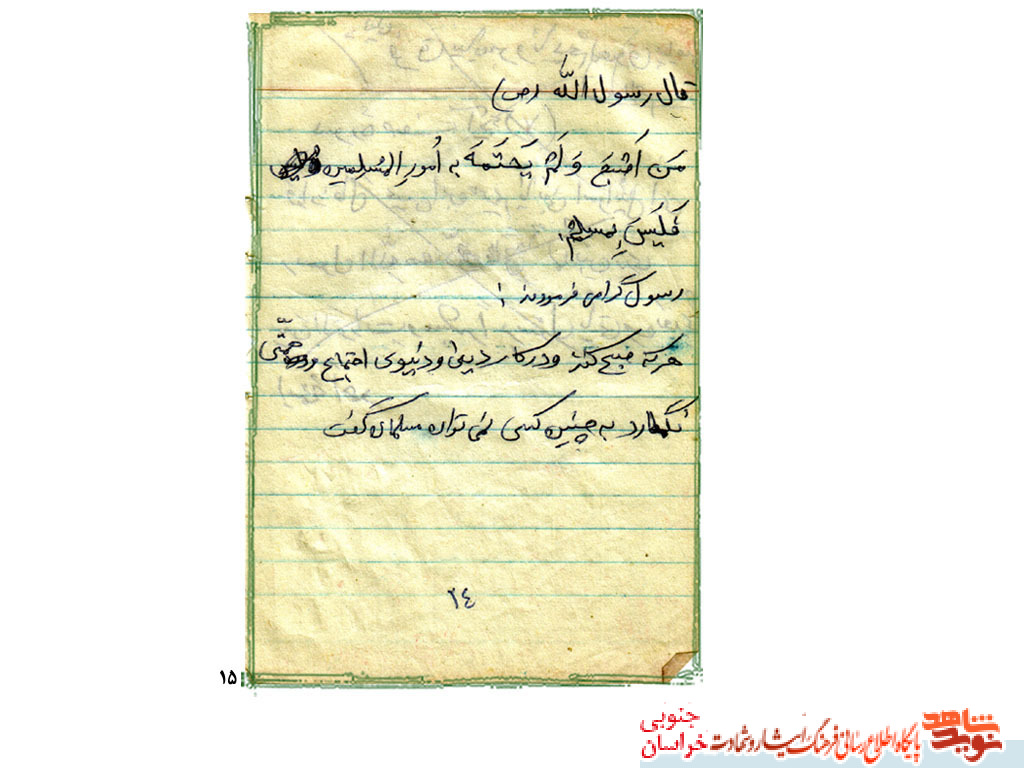 قال رسول الله (ص)
مَن اَصْبَحَ وَ لَمْ یَحتَمَهَ به اُمورِ المُسلمین
فَلَیَسَ بِمسلم
رسول گرامی فرمودند :
هر که صبح کند و در کار دینی و دنیوی اجتماع همتّی
نگمارد به چنین کسی نمی توان مسلمان گفت
۲٤
۱۵
نوید شاهد
پایگاه اطلاع رسانی فرهنگ ایثار و شهادت
جنوبی
خراسان